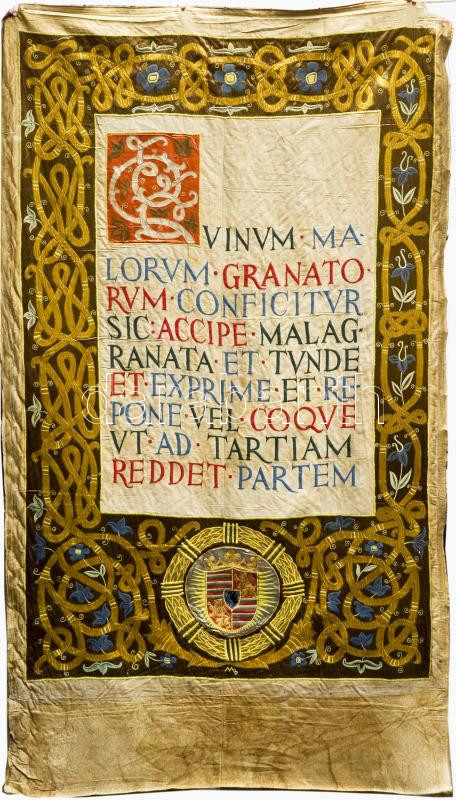 VINVM · MA
LORVM · GRANATO·
RVM · CONFICITVR
SIC: ACCIPE · MALAG
RANATA · ET · TVNDE
ET · EXPRIME · ET · RE
PONE · VEL · COQVE
VT · AD · TARTIAM
REDDET · PARTEM